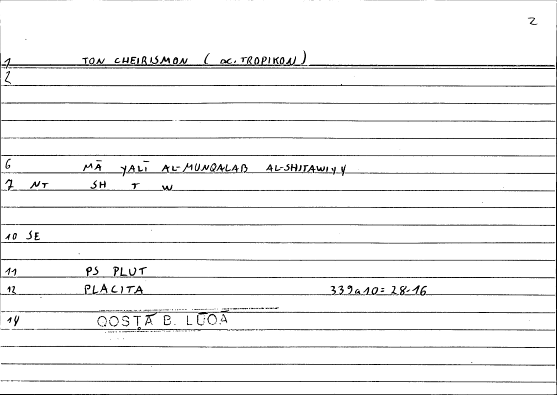 2
1 TON CHEIRISMON ( ac. TROPIKON )
2
6 MĀ YALĪ AL-MUNQALAB AL-SHITAWIYY
7 NT SH T W
10 SE
11 PS PLUT
12 PLACITA 339a10 = 28-16
14 QOSṬĀ B. LŪQĀ